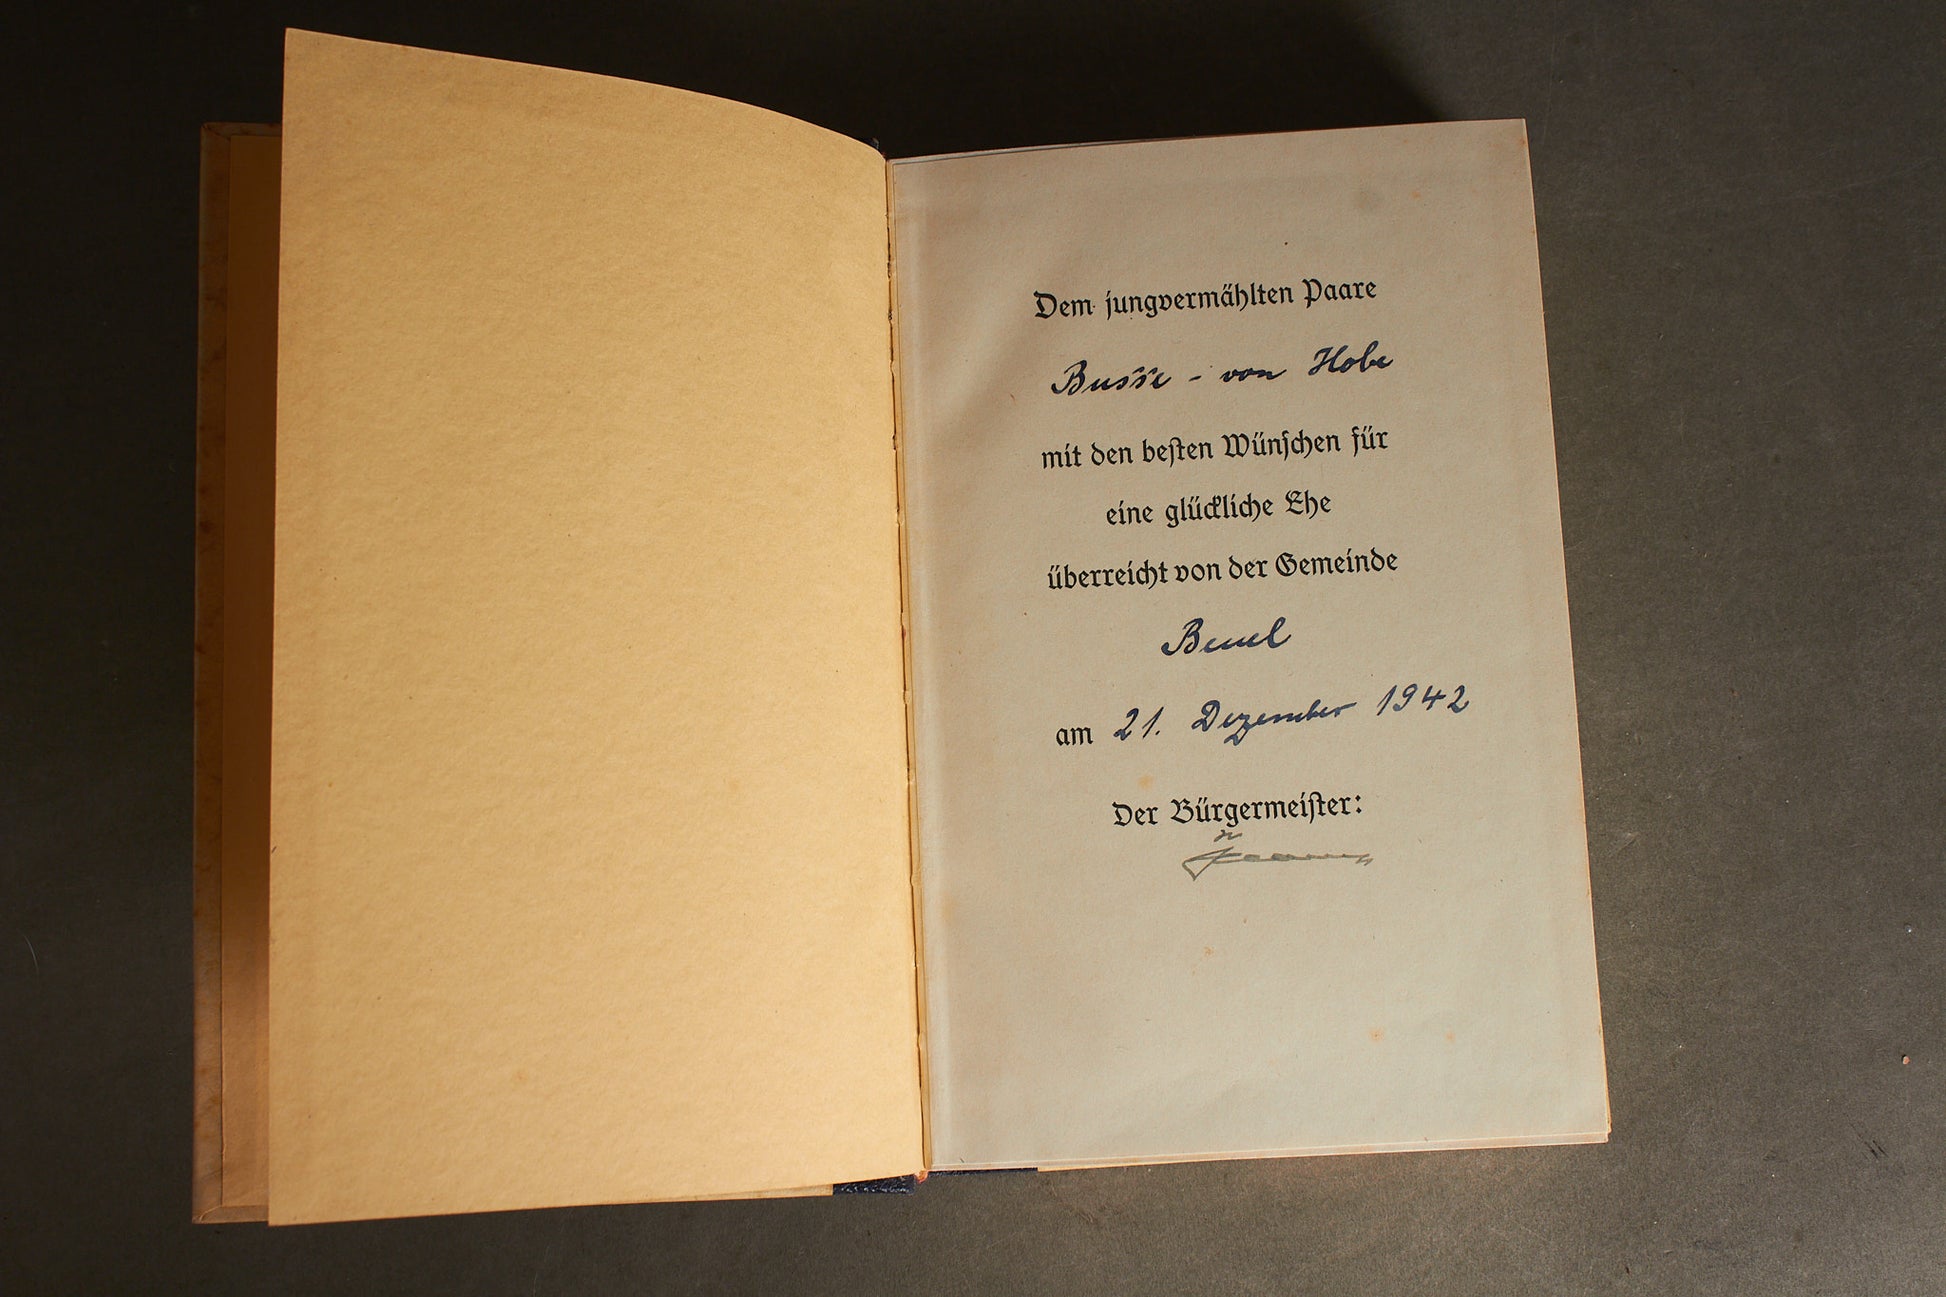 Dem jungvermählten Paare
Busse - von Hobe
mit den besten Wünschen für
eine glückliche Ehe
überreicht von der Gemeinde
Beuel
am 21. Dezember 1942
Der Bürgermeister: